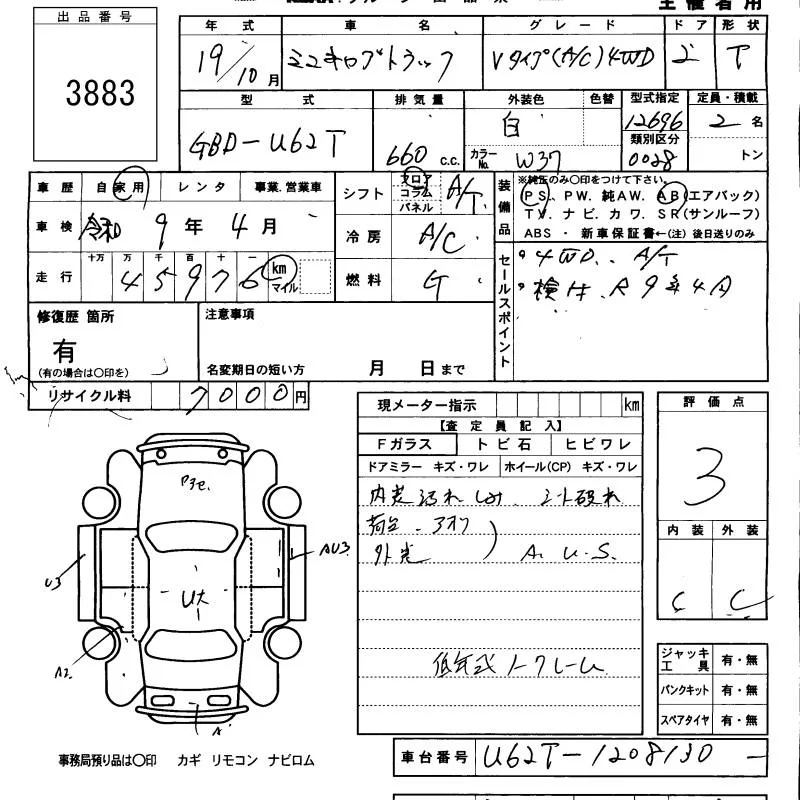 主催者用
出品番号
3883
年式 車名 グレード ドア 形状
19/10月 ミニキャブトラック Vタイプ(A/C)4WD 2 T
型式 排気量 外装色 色替 型式指定 定員・積載
GBD-U62T 660 c.c. 白 12696 2名
カラーNo. W37 類別区分 0028 トン
車歴 自家用 レンタ 事業.営業車
シフト フロア コラム パネル A/T
装備品 ※純正のみ〇印をつけて下さい。
PS、PW. 純AW. AB(エアバック)
TV. ナビ. カワ. SR(サンルーフ)
ABS ・ 新車保証書←(注) 後日送りのみ
車検 令和 9年 4月
冷房 A/C
走行 十万 万 千 百 十 一
45976 km マイル
燃料 G
セールスポイント
4WD、A/T
検付、R9年4月
修復歴 箇所
有
(有の場合は〇印を)
注意事項
名変期日の短い方 月 日まで
リサイクル料 7000円
現メーター指示 km
【査定員記入】
Fガラス トビ石 ヒビワレ
ドアミラー キズ・ワレ ホイール(CP) キズ・ワレ
内装汚れ シート破れ
荷台
外装 A. U.S.
低年式
評価点
3
内装 外装
C C
ジャッキ工具 有・無
パンクキット 有・無
スペアタイヤ 有・無
U大
U3
AU3
A2
A
事務局預り品は〇印 カギ リモコン ナビロム
車台番号 U62T-1208130